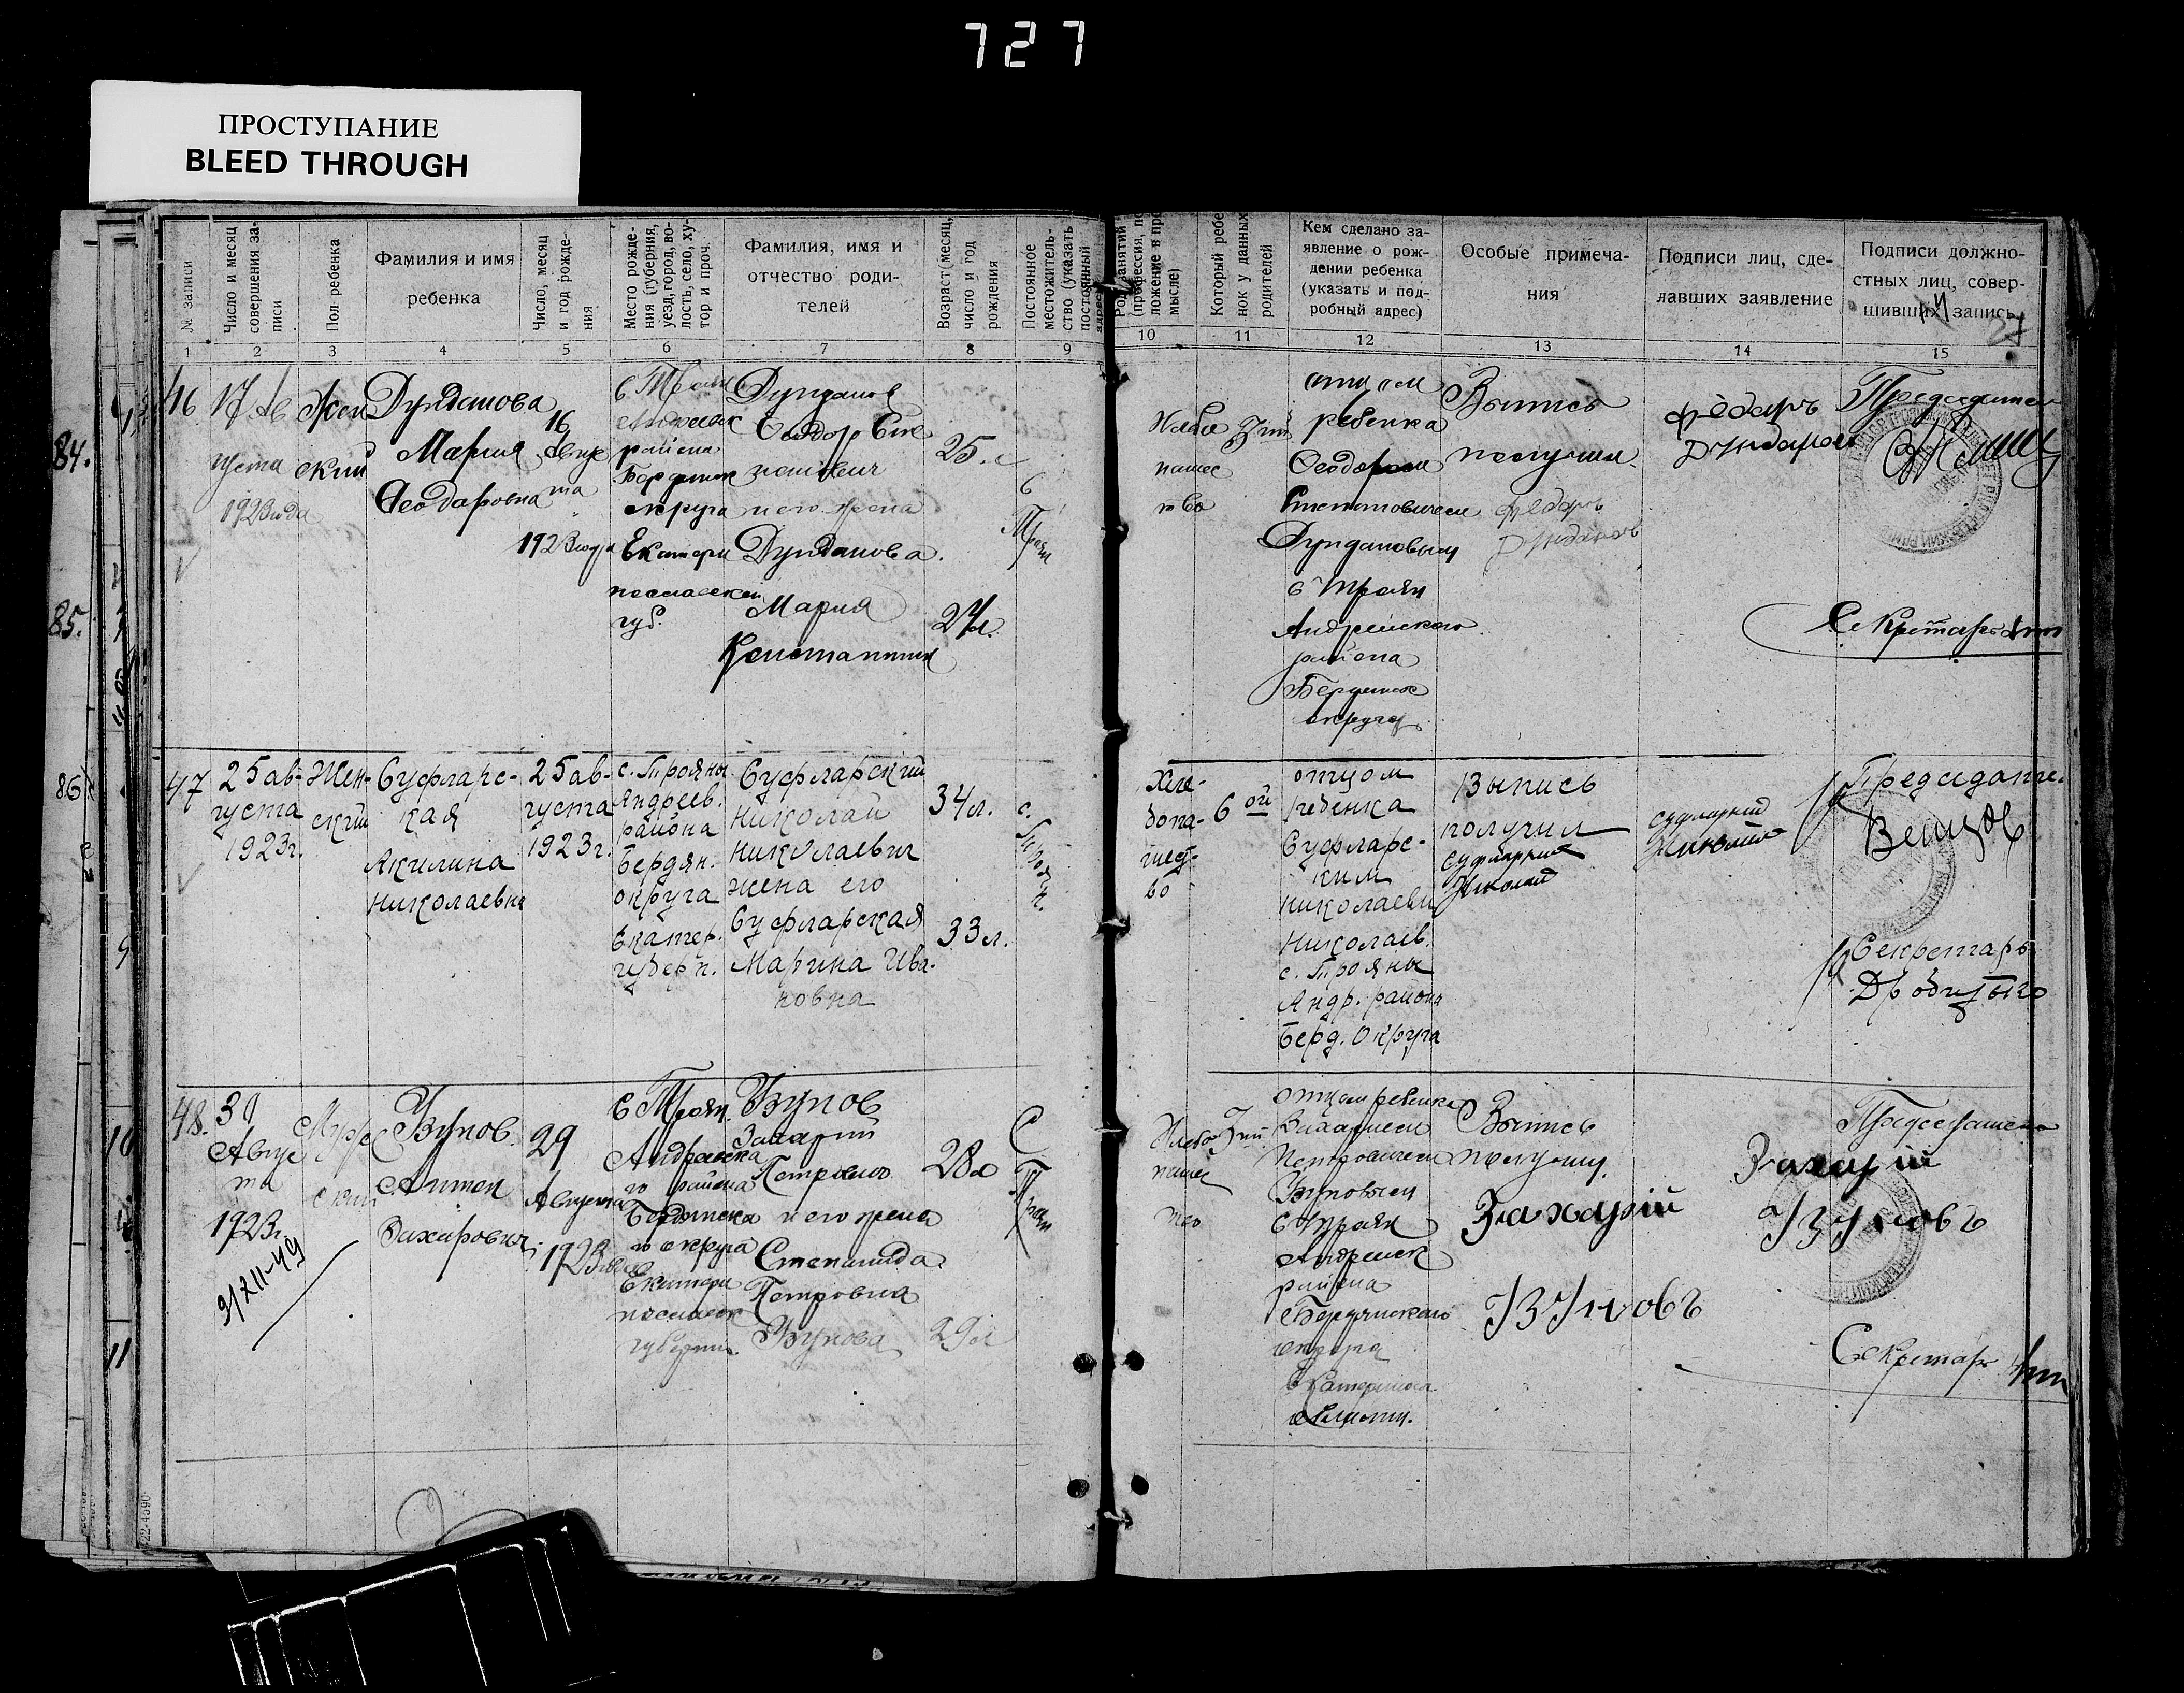 727
ПРОСТУПАНИЕ
BLEED THROUGH
№ записи
Число и месяц совершения записи
Пол ребенка
Фамилия и имя
ребенка
Число, месяц и год рождения
Место рождения (губерния, уезд, город, волость, село, хутор и проч.
Фамилия, имя и
отчество роди-
телей
Возраст (месяц, число и год рождения
Постоянное местожительство (указать постоянный
Который ребенок у данных родителей
Кем сделано за-
явление о рож-
дении ребенка
(указать и под-
робный адрес)
Особые примеча-
ния
Подписи лиц, сде-
лавших заявление
Подписи должно-
стных лиц, совер-
шивших запись
1 2 3 4 5 6 7 8 9 10 11 12 13 14 15
84.
85.
86
46
17 Ав
густа
1923 года
Жен
ский
Дунданова
Мария
Феодаровна
16
Авгус
та
1923 года
района
округа
Екатери
нославской
губ.
Дунданов
Феодор Сте
панович
и его жена
Дунданова
Мария
25. л
24 л.
с
Троян
Хлебо
пашес
тво
3 ий
отцом
ребенка
Феодором
Степановичем
Дундановым
с Троян
Андреевского
района
Бердянск
округа
Выпись
получил
Председатель
Секретарь
47
25 ав-
густа
1923 г.
Жен-
ский
Суфларс-
кая
Акилина
Николаевна
25 ав-
густа
1923 г.
с. Трояны
Андреев.
района
Бердян.
округа
Екатер.
губерн.
Суфларский
Николай
Николаевич
жена его
Суфларская
Марина Ива-
новна
34 л.
33 л.
с.
Троян.
Хле-
бопа-
шест-
во
6 ой
отцом
ребенка
Суфларс-
ким
Николаем
Николаев.
с. Трояны
Андр. района
Берд. Округа
Выпись
получил
Суфларский
Николай
Суфларский
Николай
Председате.
Секретарь
48.
31
Авгус
та
1923 г.
9/XII-49
Муж
ский
Узунов.
Захарович
29
Августа
1923
с Троян.
района
округа
губернии.
Узунов
Захарий
Петрович
и его жена
Степанида
Петровна
Узунова
28 л
29 л
С
Троян
3 ий
отцом ребенка
Захарием
Петровичем
Узуновым
с Троян
района
Бердянского
округа
Выпись
получил.
Захарий
Узуновъ
Захарій
Узуновъ
Председатель
Секретарь